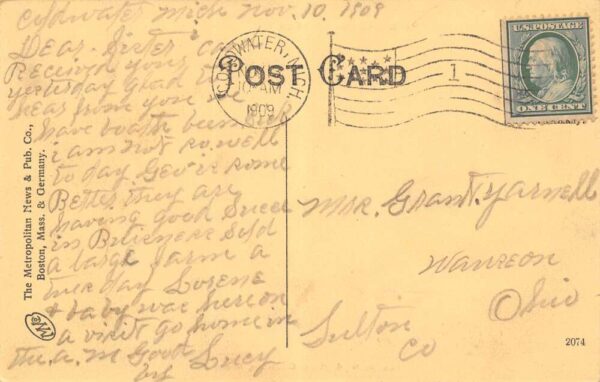 Coldwater Mich Nov. 10, 1909
Dear Sister
Received your
yesterday glad to
hear from you we
have boath been sick
i am not so well
to day Geo is some
Better they are
having good Succe
in Buisness sold
a large farm a
tues day Lorene
& baby was here on
a visit go home in
the a.m Good
by Lucy
POST CARD
COLDWATER, MICH.
10 AM
1909
1
U.S. POSTAGE
ONE CENT
Mrs. Grant. Yarnell
Wauseon
Ohio
Fulton
Co
The Metropolitan News & Pub. Co.,
Boston, Mass. & Germany.
2074